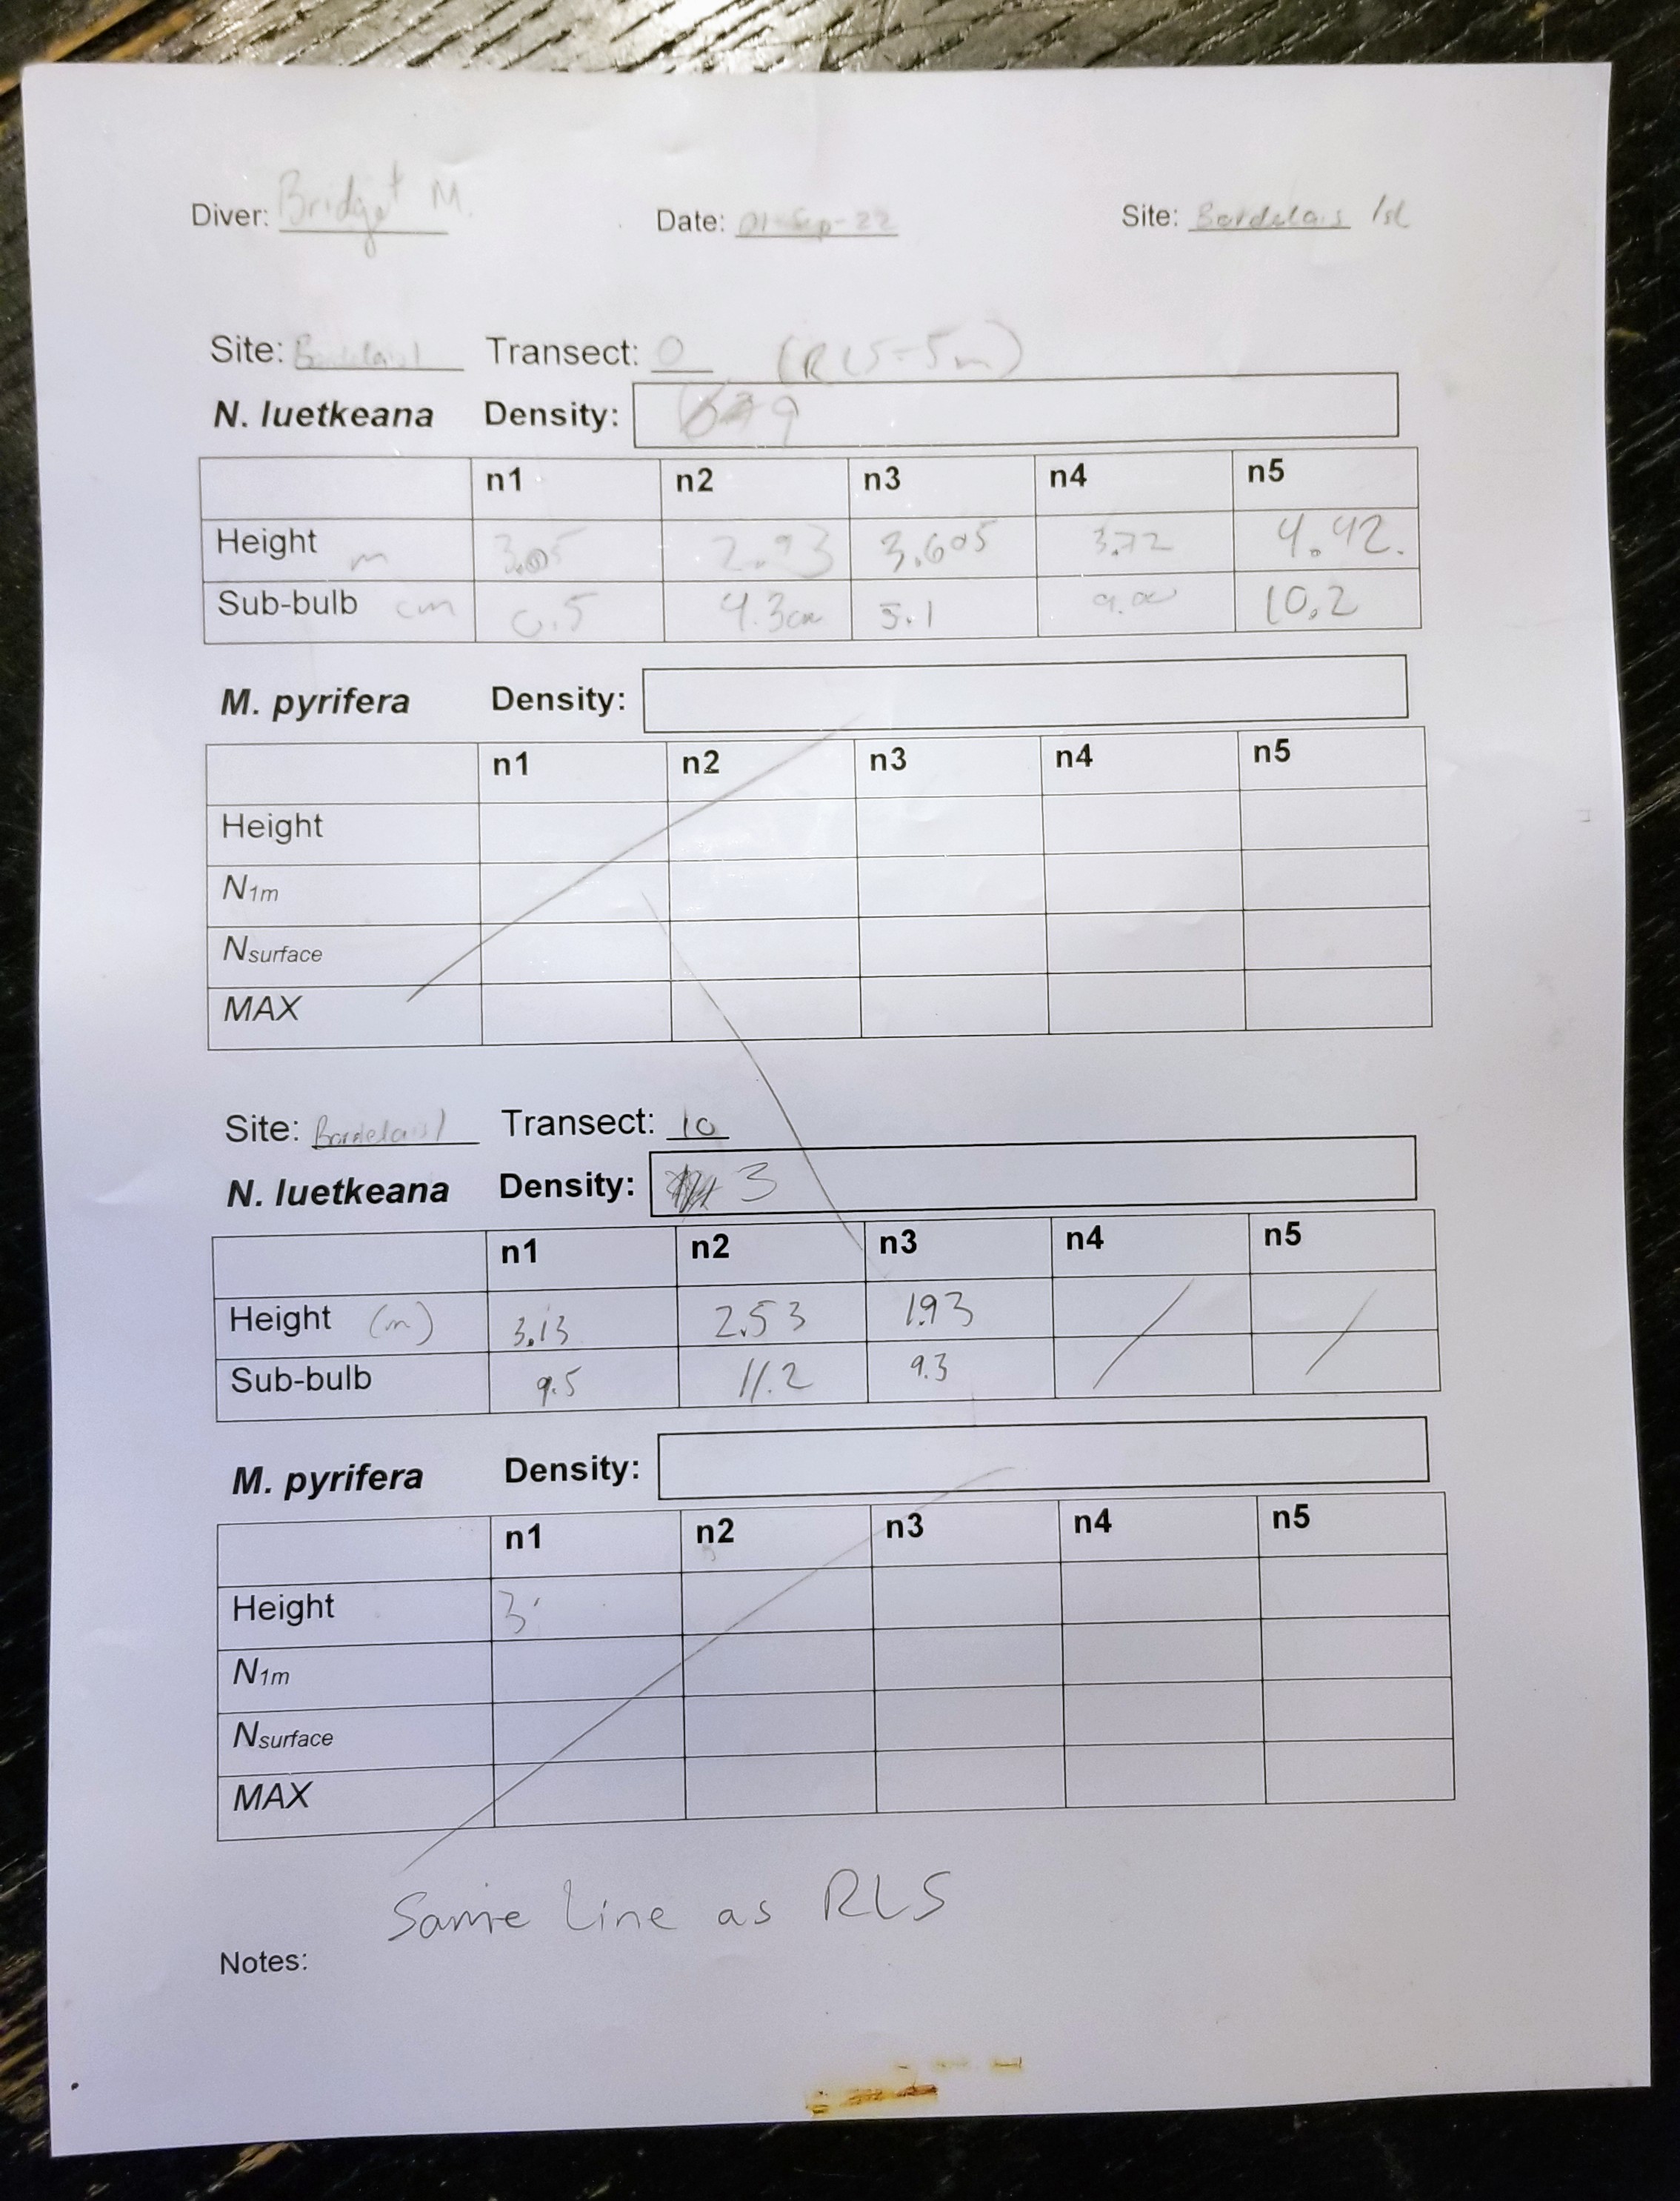 Diver: Bridget M. Date: 01-Sep-22 Site: Bordelais Isl
Site: Bordelais I Transect: 0 (RLS=5m)
N. luetkeana Density: 9
n1 n2 n3 n4 n5
Height m 3.05 2.93 3.605 3.72 4.42.
Sub-bulb cm 4.3cm 5.1 9.00 10.2
M. pyrifera Density:
n1 n2 n3 n4 n5
Height
N1m
Nsurface
MAX
Site: Bordelais I Transect: 10
N. luetkeana Density: 3
n1 n2 n3 n4 n5
Height (m) 3.13 2.53 1.93
Sub-bulb 9.5 11.2 9.3
M. pyrifera Density:
n1 n2 n3 n4 n5
Height 3.
N1m
Nsurface
MAX
Same line as RLS
Notes: